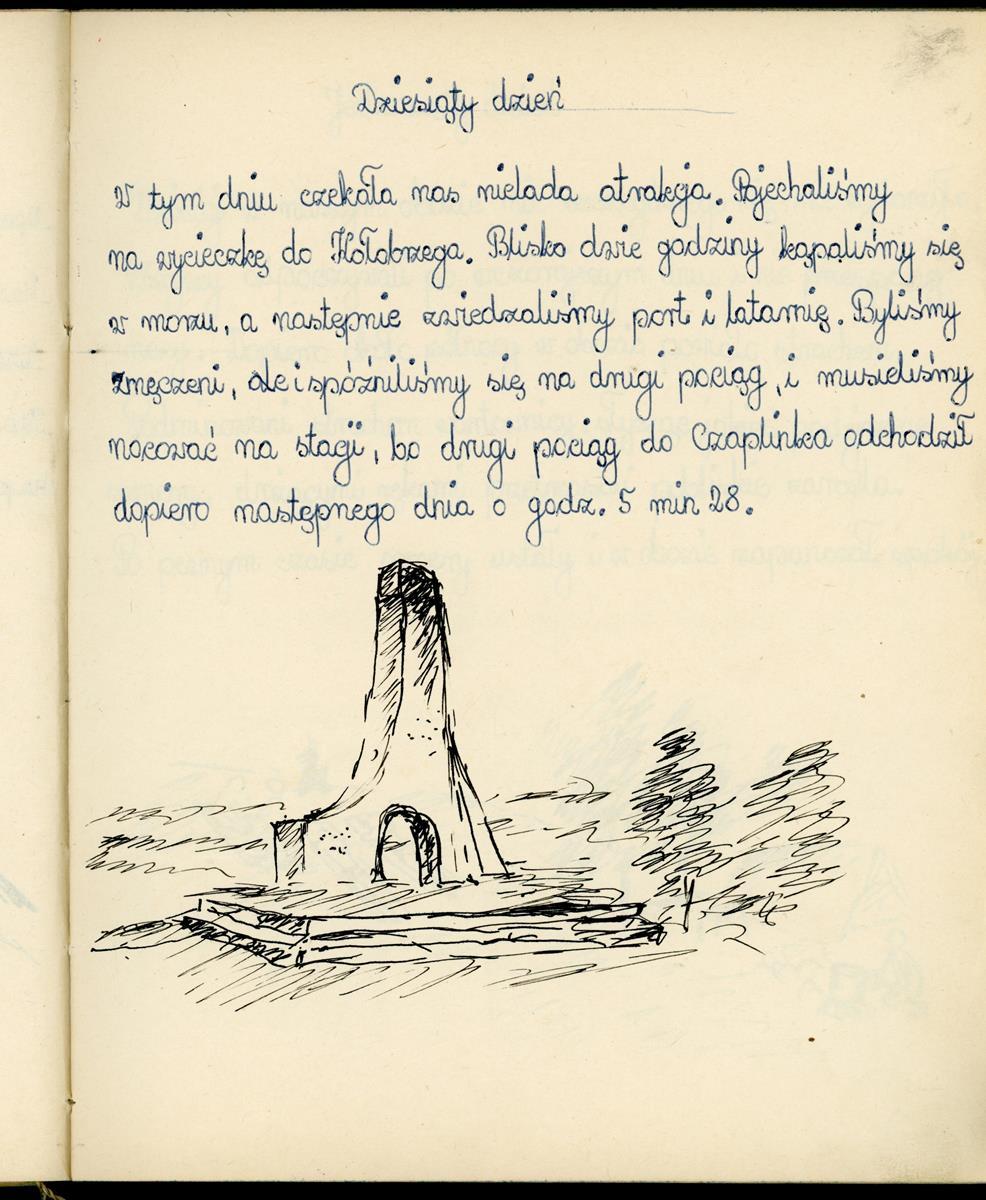 Dziesiąty dzień
W tym dniu czekała nas nielada atrakcja. Pojechaliśmy
na wycieczkę do Kołobrzega. Blisko dwie godziny kąpaliśmy się
w morzu, a następnie zwiedzaliśmy port i latarnię. Byliśmy
zmęczeni, ale i spóźniliśmy się na drugi pociąg, i musieliśmy
nocować na stacji, bo drugi pociąg do Czaplinka odchodził
dopiero następnego dnia o godz. 5 min 28.